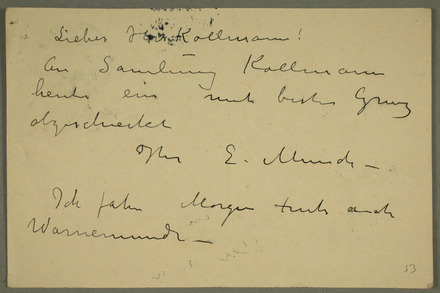 Lieber Herr Kollmann!
An Samlung Kollmann
heute ein mit bester Gruz
abgeschickt
Ihr E. Munch –
Ich fahr Morgen fruh nach
Warnemunde –
53